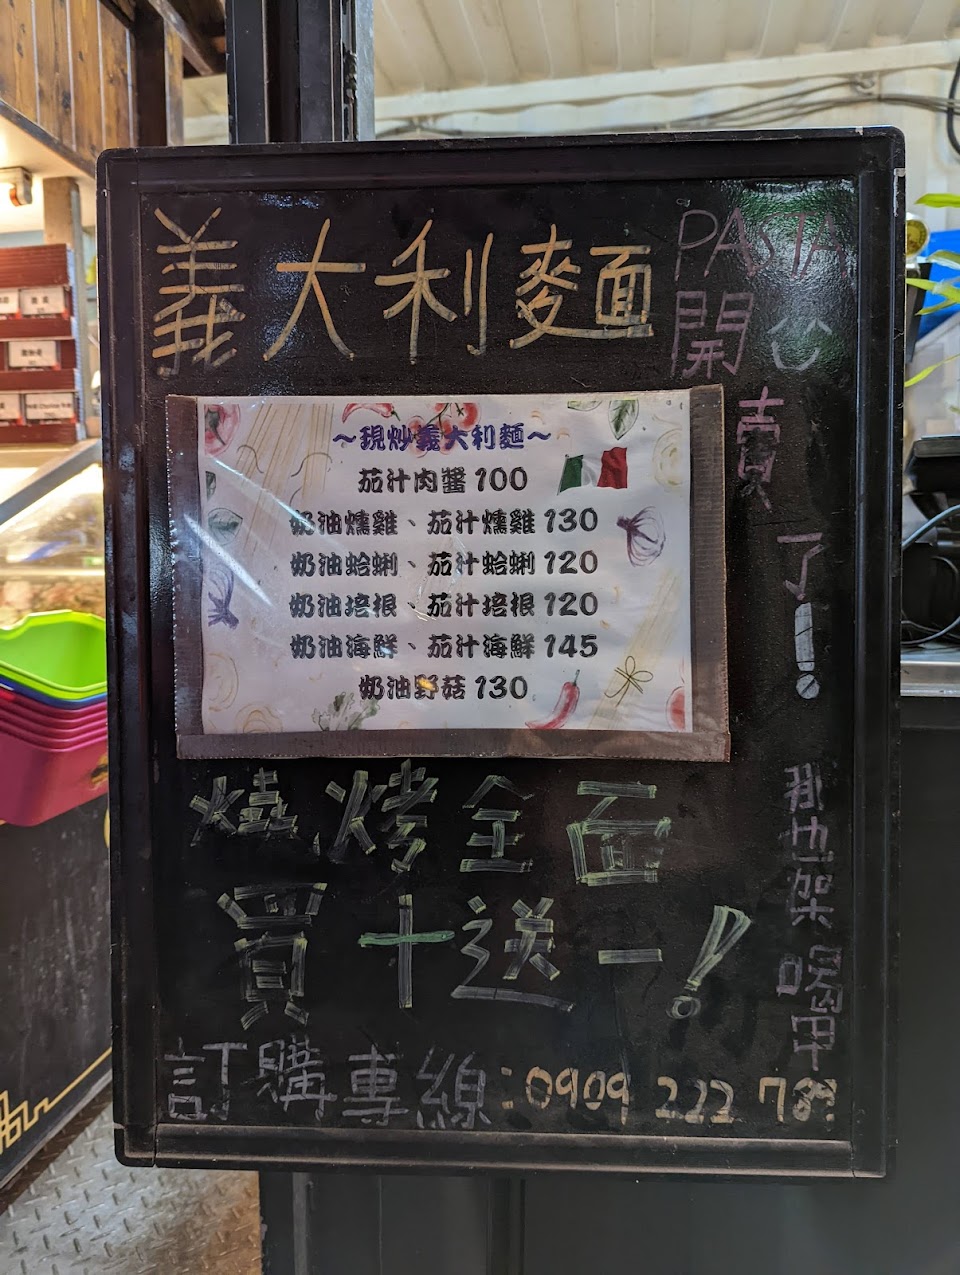 義大利麵
PASTA
開
賣
了!
~現炒義大利麵~
茄汁肉醬 100
奶油燻雞、茄汁燻雞 130
奶油蛤蜊、茄汁蛤蜊 120
奶油培根、茄汁培根 120
奶油海鮮、茄汁海鮮 145
奶油野菇 130
燒烤全面
買十送一!
訂購專線:0909 222 789